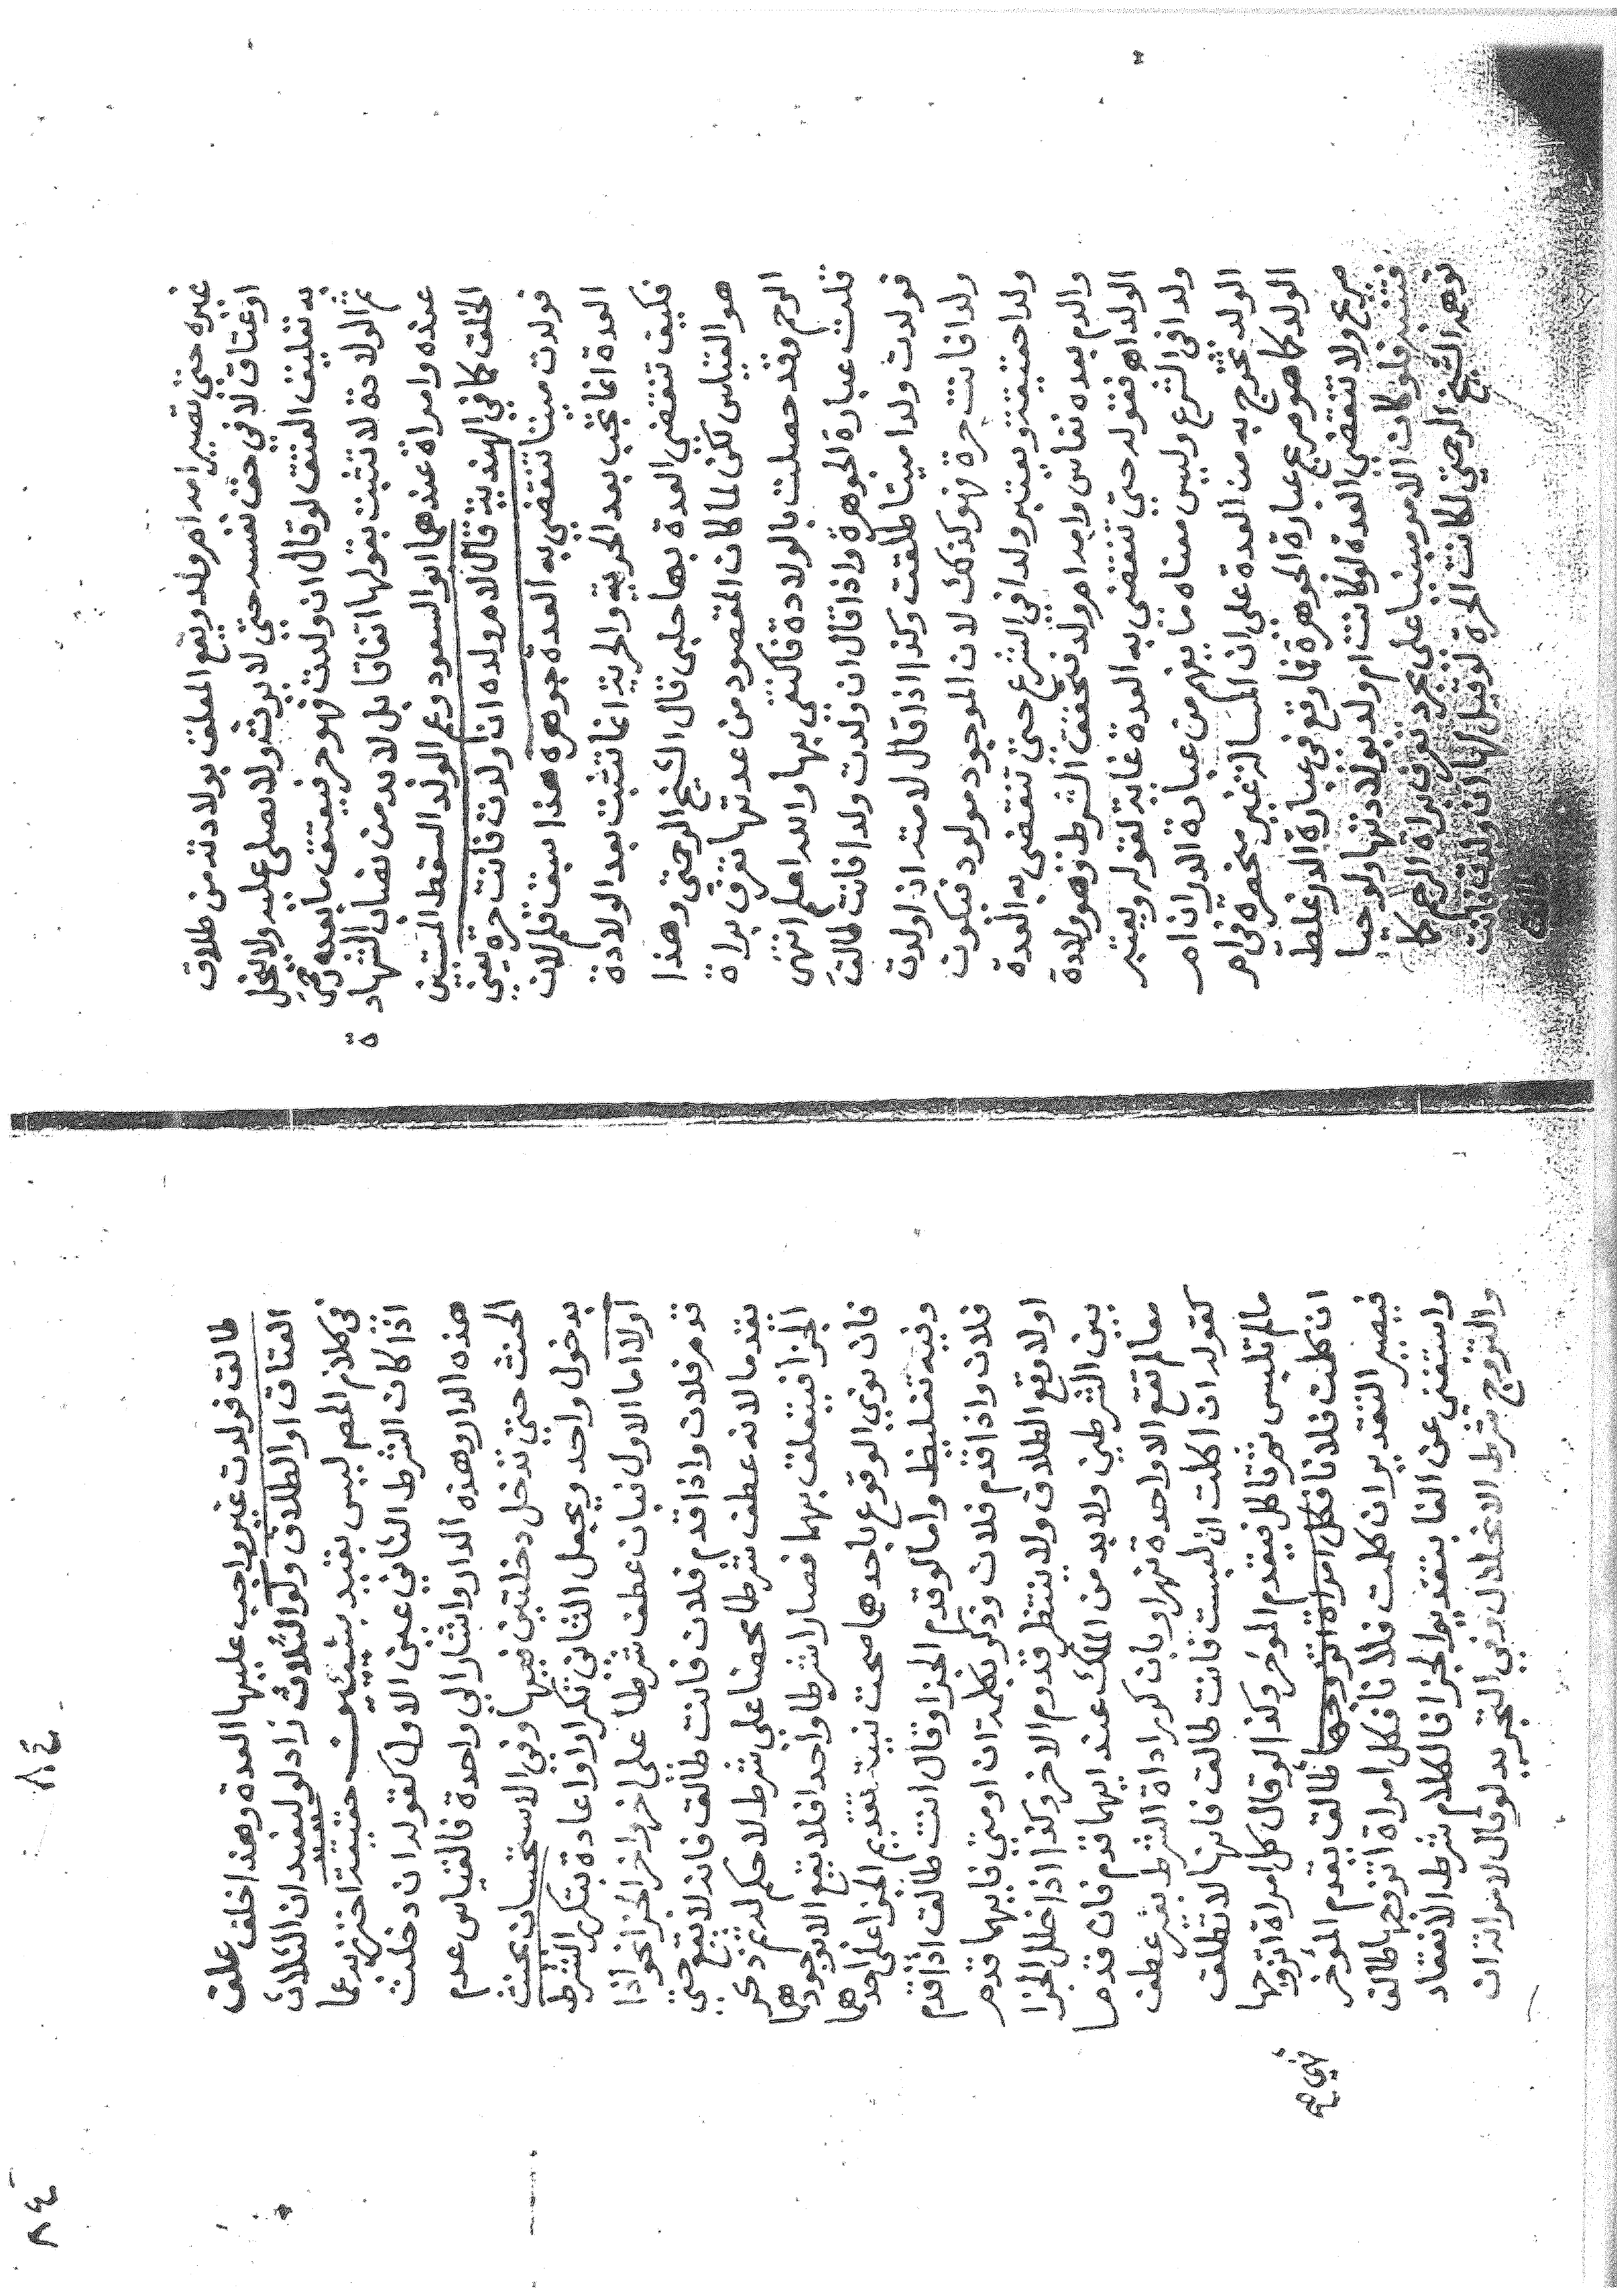 غيره حتى تصير امه ام ولد ويقع المعلق بولادته من طلاق
او عتاق لا في حق نفسه حتى لا يرث ولا يصلى عليه ولا يدخل
به تعليق العتق لو قال ان ولدت فهو حر فيعتق ما بعده
ثم الولادة لا تثبت بقولها اتفاقا بل لا بد من نصاب الشهادة
عنده وامراة عندهما ابو السعود وعم الولد السقط المستبين
الخلق كما في الهندية قال لام ولده ان ولدت فانت حرة يعني
فولدت ميتا تنقضي به العدة جوهرة هذا سبق قلم لان
العدة انما تجب بعد الحرية والحرية انما تثبت بعد الولادة
فكيف تنقضي العدة بها حلبي قال الشيخ الرحمتي وهذا
هو القياس لكن لما كان المقصود من عدتها تعرف براة
الرحم وقد حصلت بالولادة فاكتفي بها والله اعلم انتهى
قلت عبارة الجوهرة واذا قال ان ولدت ولدا فانت طالق
فولدت ولدا ميتا طلقت وكذا اذا قال لامته اذا ولدت
ولدا فانت حرة فهو كذلك لان الموجود مولود فيكون
ولدا حقيقة ويعتبر ولدا في الشرع حتى تنقضي به العدة
والدم بعده نفاس وامه ام ولد فتحقق الشرط وهو ولادة
الولد اه فقوله حتى تنقضي به العدة غاية لقوله ويعتبر
ولدا في الشرع وليس معناه ما يفهم من عبارة الدر ان ام
الولد تخرج به من العدة على ان المسالة غير منحصرة في ام
الولد كما هو صريح عبارة الجوهرة فما وقع في عبارة الدر غلط
صريح ولا تنقضي العدة لو كانت ام ولد بولادتها ولو حيا
فلو كان الامر مبنيا على مجرد تعرف براة الرحم كما
توهمه الشيخ الرحمتي لكانت الحرة لو قيل لها ان ولدت فانت
٨٤
٨٤
طالق فولدت غير واجب عليها العدة وهذا خلف علق
العتاق او الطلاق ولو الثلاث زاد لو ليفيد ان الثلاث
في كلام المصم ليس بقيد بشيئين حقيقة احترز به عما
اذا كان الشرط الثاني عين الاول كقوله ان دخلت
هذه الدار وهذه الدار واشار الى واحدة فالقياس عدم
الحنث حتى تدخل دخلتين فيها وفي الاستحسان يحنث
بدخول واحد ويجعل الثاني تكرارا واعادة بتكرر الشرط
اولا اما الاول فبان عطف شرطا على اخر واخر الجزا نحو اذا
قدم فلان واذا قدم فلان فانت طالق فانه لا يقع حتى
يقدما لانه عطف شرطا محضا على شرط لا حكم له ثم ذكر
الجزا فيتعلق بهما فصارا شرطا واحدا فلا يقع الا بوجودهما
فان نوى الوقوع باحدهما صحت نيته بتقديم الجزا على احدهما
وفيه تغليظ واما لو قدم الجزا وقال انت طالق اذا قدم
فلان واذا قدم فلان وذكر بكلمة ان او متى فايهما قدم
اولا وقع الطلاق ولا ينتظر قدوم الاخر وكذا اذا خلل الجزا
بين الشرطين ولا بد من الملك عند ايهما قدم فان قدما
معا لم تقع الا واحدة نهر او بان كرر اداة الشرط بغير عطف
كقوله ان اكلت ان لبست فانت طالق فانها لا تطلق
مالم تلبس ثم تاكل فيقدم المؤخر وكذا لو قال كل امراة اتزوجها
ان كلمت فلانا فكل امراة اتزوجها طالق يقدم المؤخر
فيصير التقدير ان كلمت فلانا فكل امراة اتزوجها طالق
واستغنى عن الفا بتقديم الجزا فالكلام شرط الانعقاد
والتزوج شرط الانحلال وفي التجريد لو قال لامراته ان